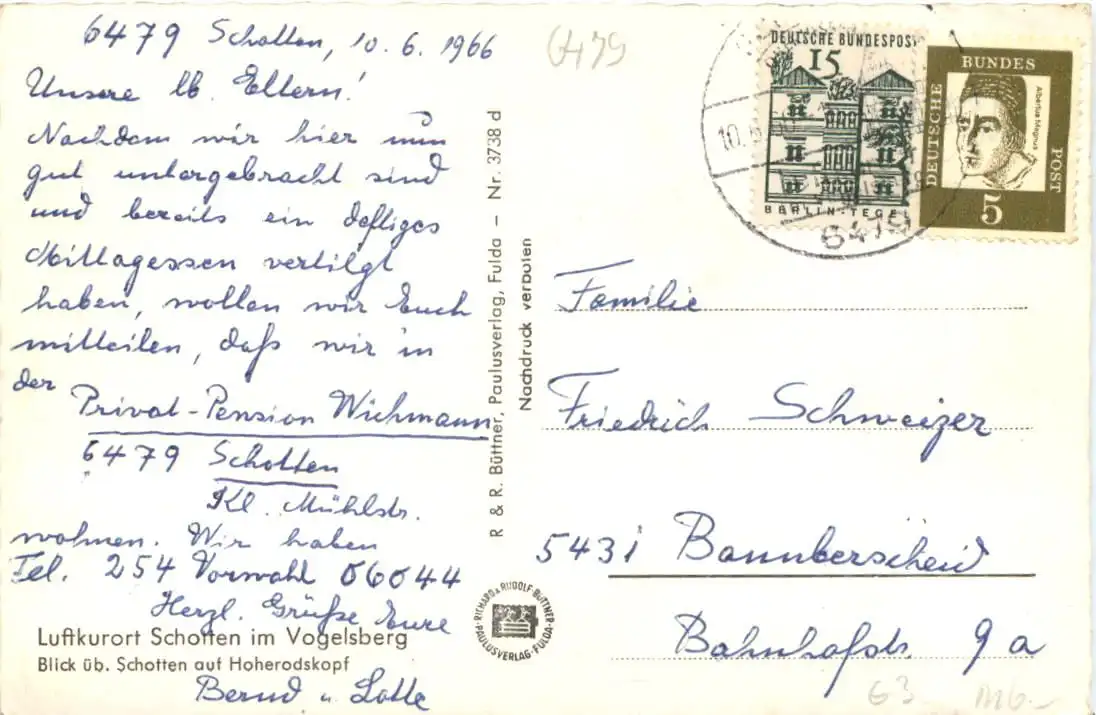 6479 Schotten, 10. 6. 1966
Unsere lb. Eltern!
Nachdem wir hier nun
gut untergebracht sind
und bereits ein deftiges
Mittagessen vertilgt
haben, wollen wir Euch
mitteilen, daß wir in
der
Privat-Pension Wichmann
6479 Schotten
Kl. Mühlstr.
wohnen. Wir haben
Tel. 254 Vorwahl 06044
Herzl. Grüße Eure
Bernd u. Lotte
Luftkurort Schotten im Vogelsberg
Blick üb. Schotten auf Hoherodskopf
R & R. Büttner, Paulusverlag, Fulda – Nr. 3738 d
Nachdruck verboten
RICHARD & RUDOLF BÜTTNER
PAULUSVERLAG · FULDA
6479
DEUTSCHE BUNDESPOST
15
BERLIN-TEGEL
DEUTSCHE BUNDES POST
Albertus Magnus
5
10.6.66
6479
Familie
Friedrich Schweizer
5431 Bannberscheid
Bahnhofstr. 9a
63